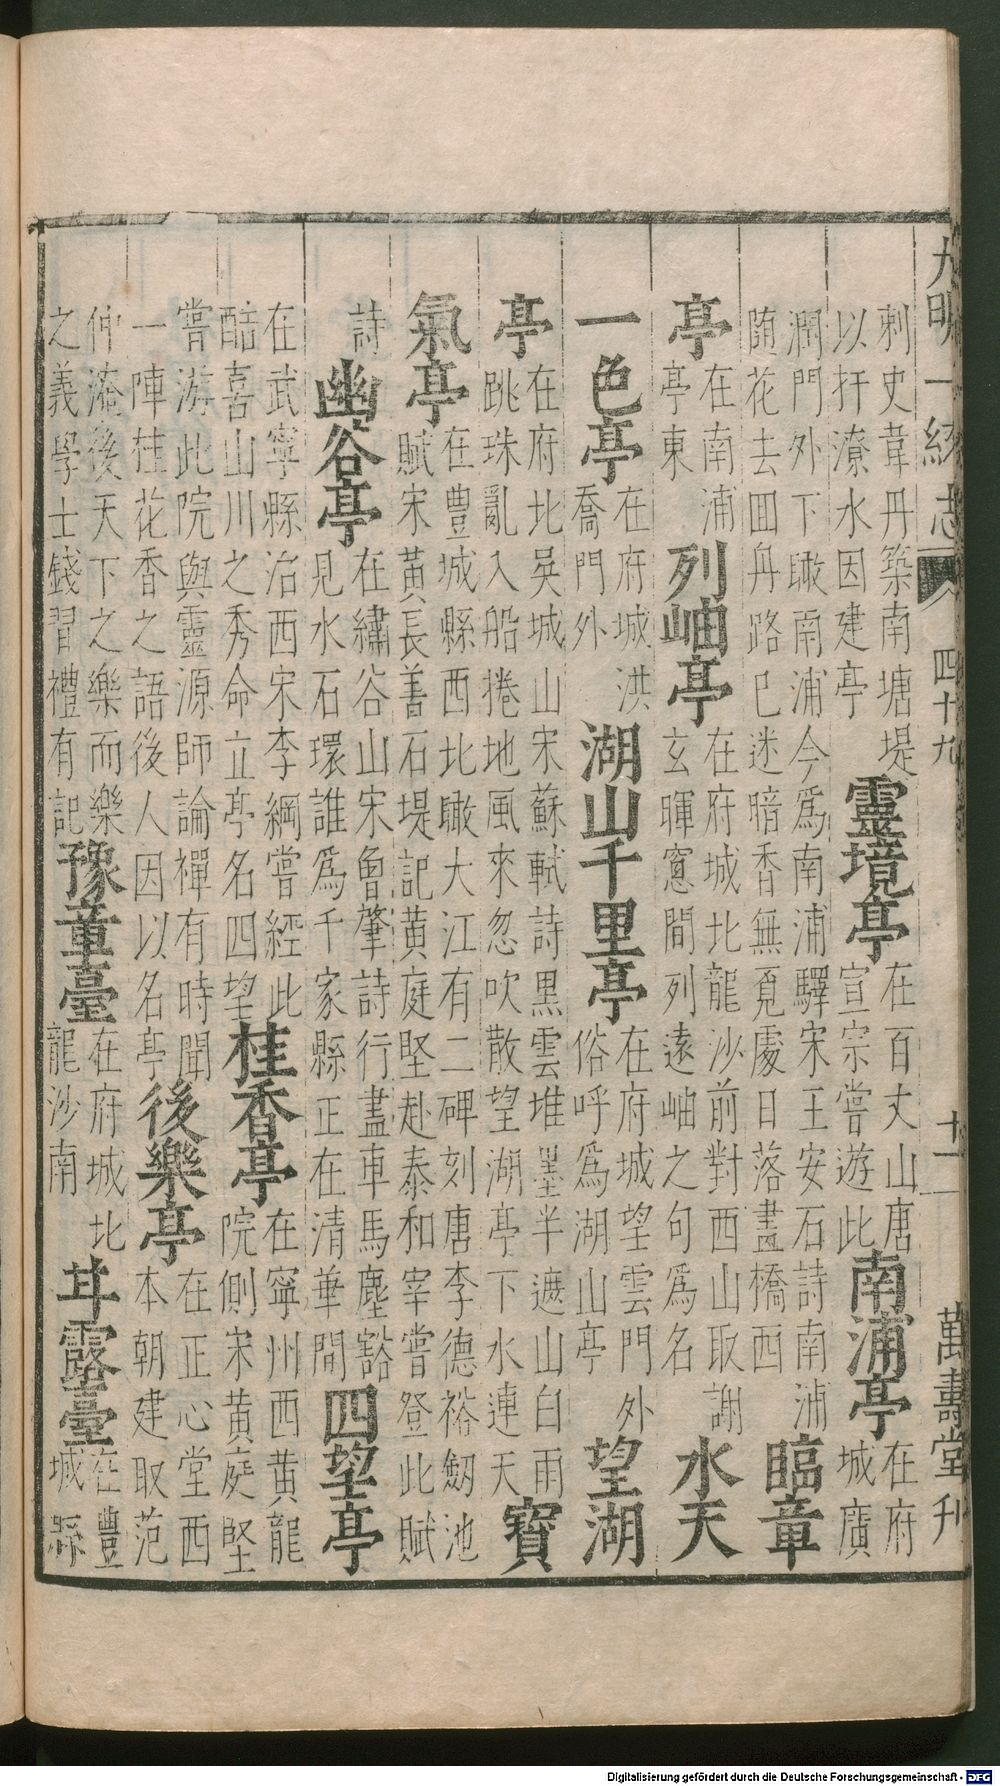 大明一統志 卷四十九 十一 萬壽堂刊
刺史韋丹築南塘堤
以扞潦水因建亭
靈境亭
在百丈山唐
宣宗嘗遊此
南浦亭
在府
城廣
潤門外下瞰南浦今爲南浦驛宋王安石詩南浦
随花去回舟路已迷暗香無覓處日落畫橋西
臨章
亭
在南浦
亭東
列岫亭
在府城北龍沙前對西山取謝
玄暉窻間列遠岫之句爲名
水天
一色亭
在府城洪
喬門外
湖山千里亭
在府城望雲門外
俗呼爲湖山亭
望湖
亭
在府北吳城山宋蘇軾詩黑雲堆墨半遮山白雨
跳珠亂入船捲地風來忽吹散望湖亭下水連天
寶
氣亭
在豐城縣西北瞰大江有二碑刻唐李德裕劒池
賦宋黃長善石堤記黃庭堅赴泰和宰嘗登此賦
詩
幽谷亭
在繡谷山宋魯肇詩行盡車馬塵豁
見水石環誰爲千家縣正在清華間
四望亭
在武寧縣治西宋李綱嘗經此
酷喜山川之秀命立亭名四望
桂香亭
在寧州西黄龍
院側宋黃庭堅
嘗游此院與靈源師論禪有時聞
一陣桂花香之語後人因以名亭
後樂亭
在正心堂西
本朝建取范
仲淹後天下之樂而樂
之義學士錢習禮有記
豫章臺
在府城北
龍沙南
甘露臺
在豐
城縣
Digitalisierung gefördert durch die Deutsche Forschungsgemeinschaft - DFG